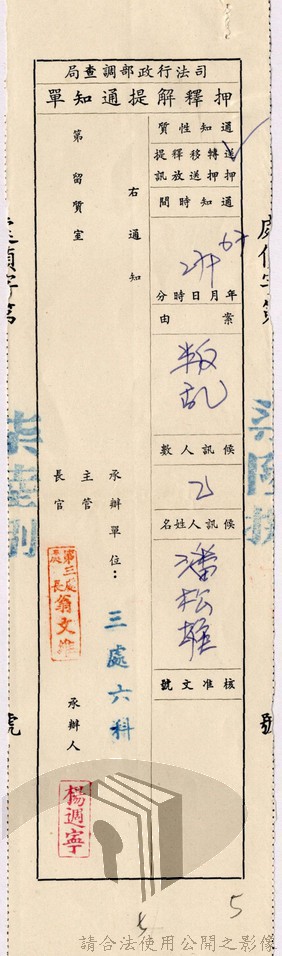 司法行政部調查局
押釋解提通知單
通知性質
送押
轉押
移送
釋放
提訊
通知時間
67
年月日時分
案由
叛乱
候訊人數
乙
候訊人姓名
潘松雄
核准文號
右通知
第留質室
承辦單位：三處六科
主管長官
第三處處長翁文維
承辦人
楊週寧
處偵字第
柒陸捌
號
5
請合法使用公開之影像